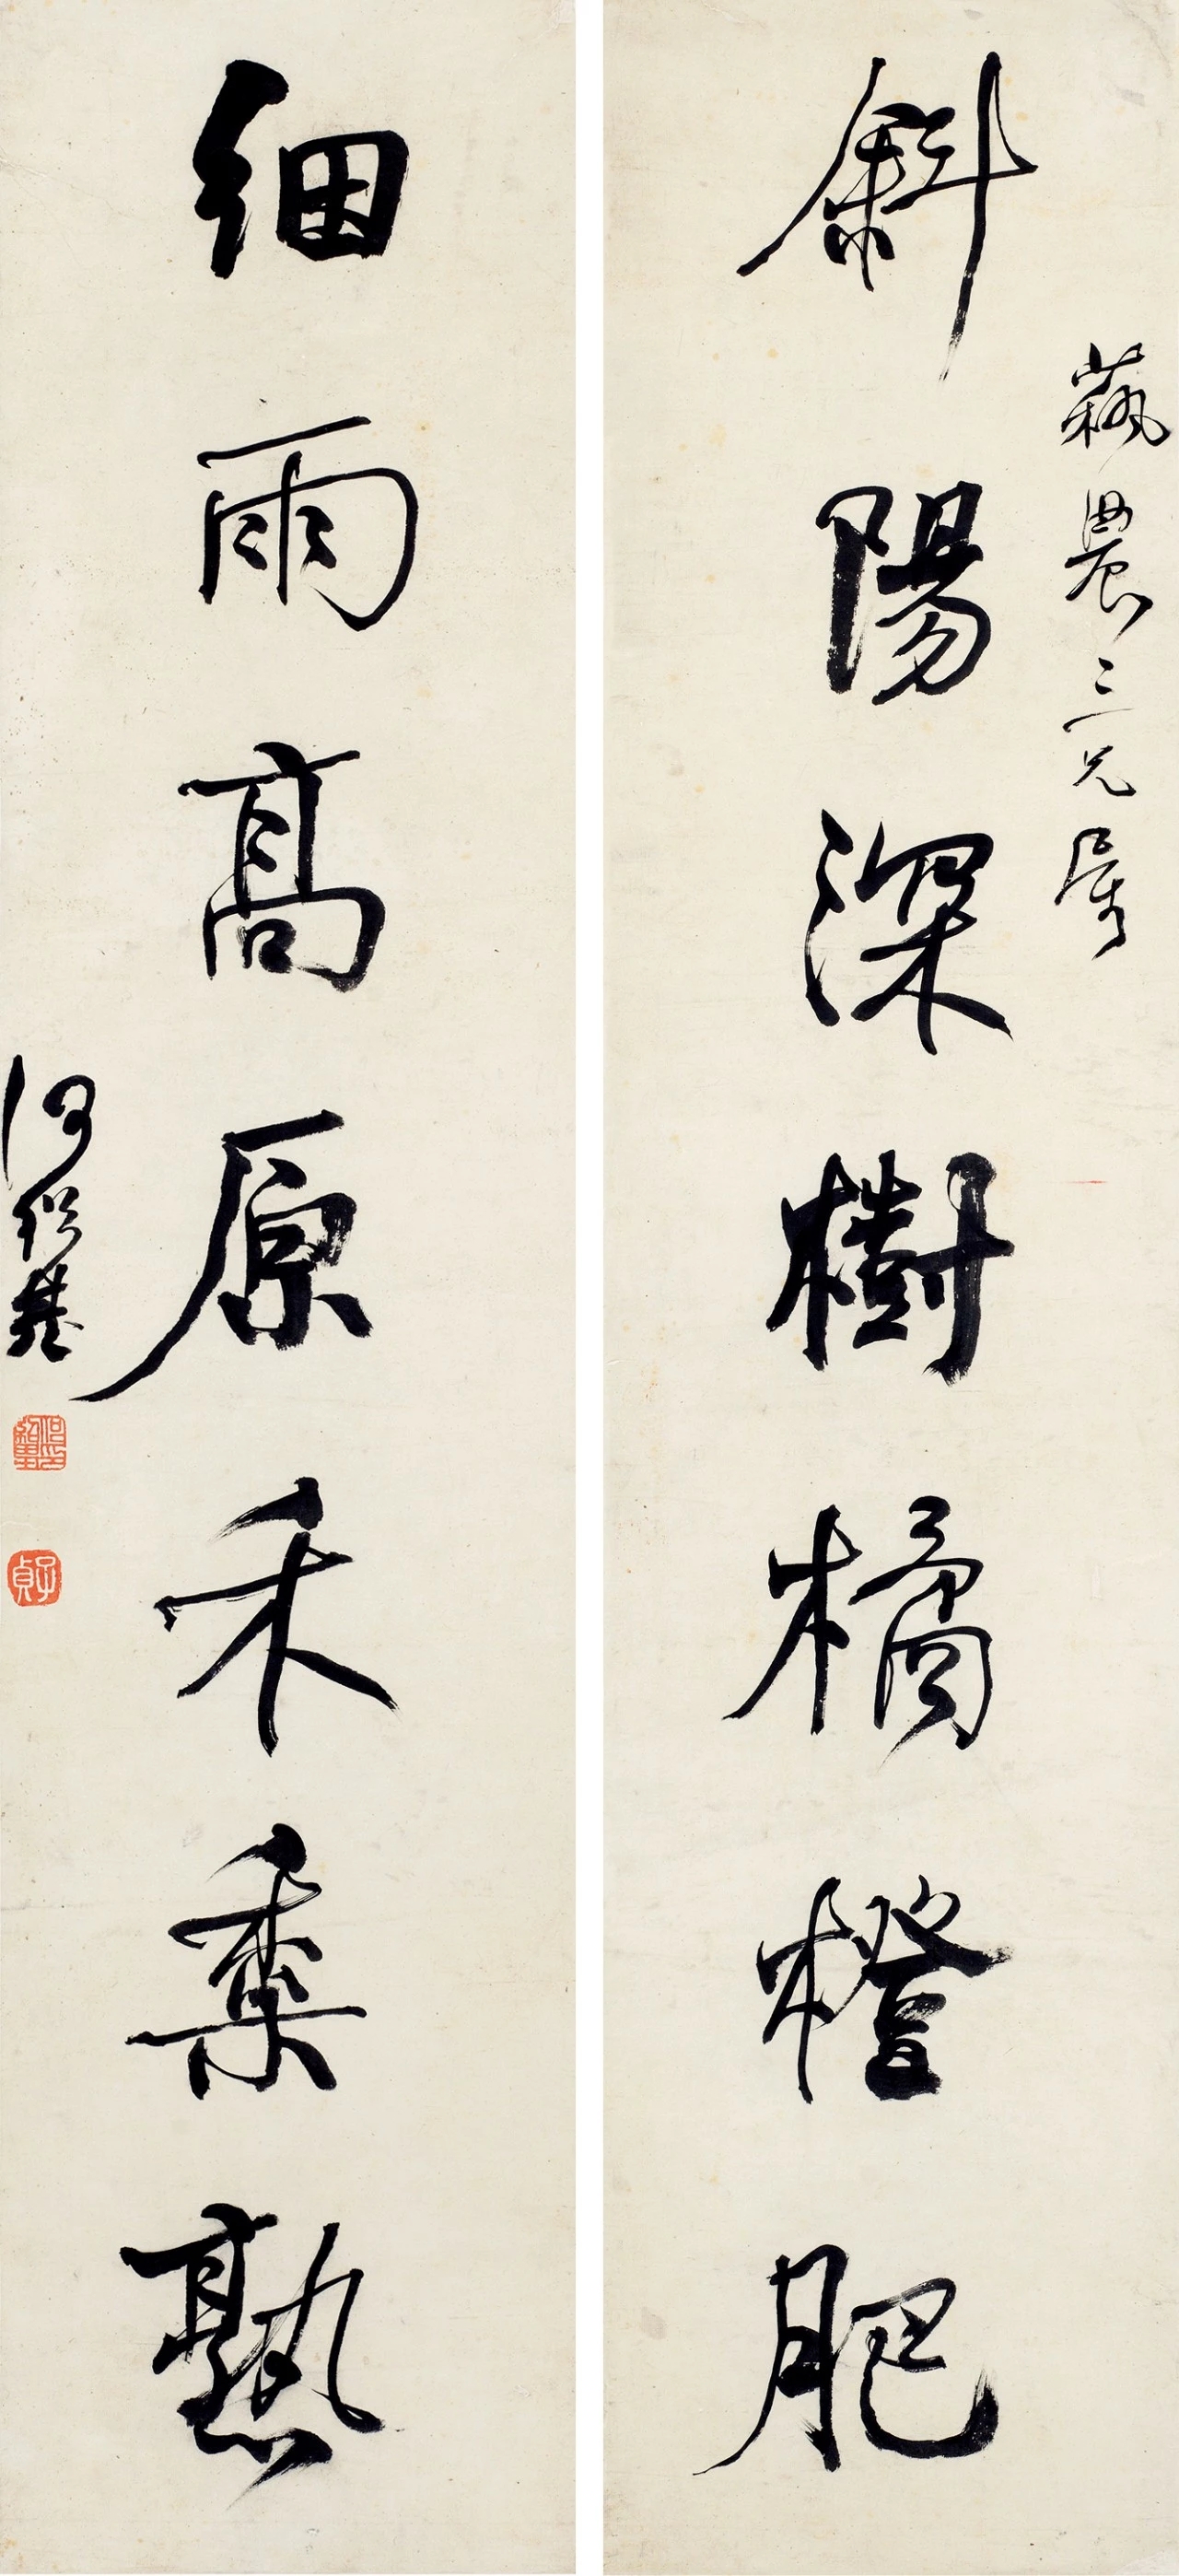 農三兄屬
斜陽深樹橘橙肥
細雨高原禾黍熟
何紹基
何紹基印
子貞